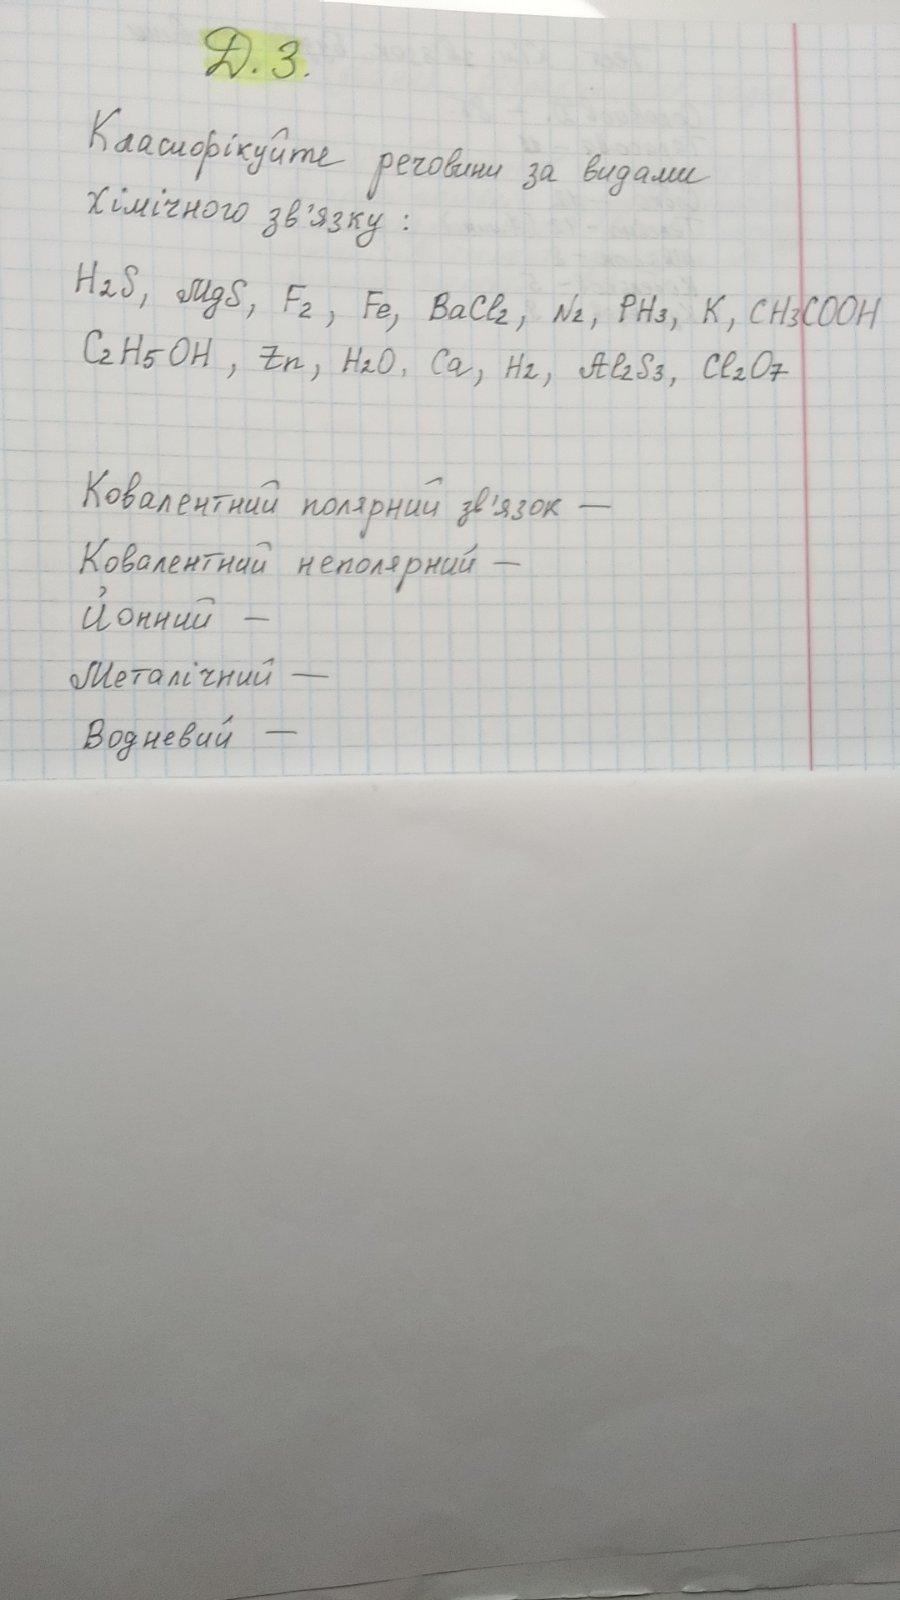 Д. З.
Класифікуйте речовини за видами
хімічного зв'язку :
H2S, MgS, F2, Fe, BaCl2, N2, PH3, K, CH3COOH
C2H5OH, Zn, H2O, Ca, H2, Al2S3, Cl2O7
Ковалентний полярний зв'язок —
Ковалентний неполярний —
Йонний —
Металічний —
Водневий —